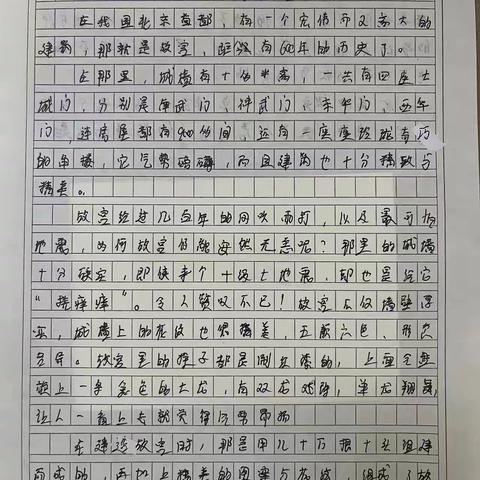 在我国北京首都，有一个宏伟而又高大的
建筑，那就是故宫，距今有600年的历史了。
在那里，城墙有十分米高，一共有四座大
城门，分别是午武门，神武门，东午门，西午
门，连房屋都有900多间，还有一座座玲珑奇巧
的角楼，它气势磅礴，而且建筑也十分精致与
精美。
故宫经过几百年的风吹雨打，以及最可怕
地震，为何故宫仍能安然无恙呢？那里的城墙
十分硬实，即使来个十级大地震，却也是给它
“挠痒痒”。令人赞叹不已！故宫不仅墙壁厚
实，城墙上的花纹也很精美，五颜六色，形态
各异。故宫里的柱子都是
颜上一条金色的大龙，有双龙戏珠，单龙翔舞，
让人一看上去就觉得气势昂扬
在建造故宫时，那是用几十万根木头组建
而成的，再加上精美的图案与花纹，组成了故